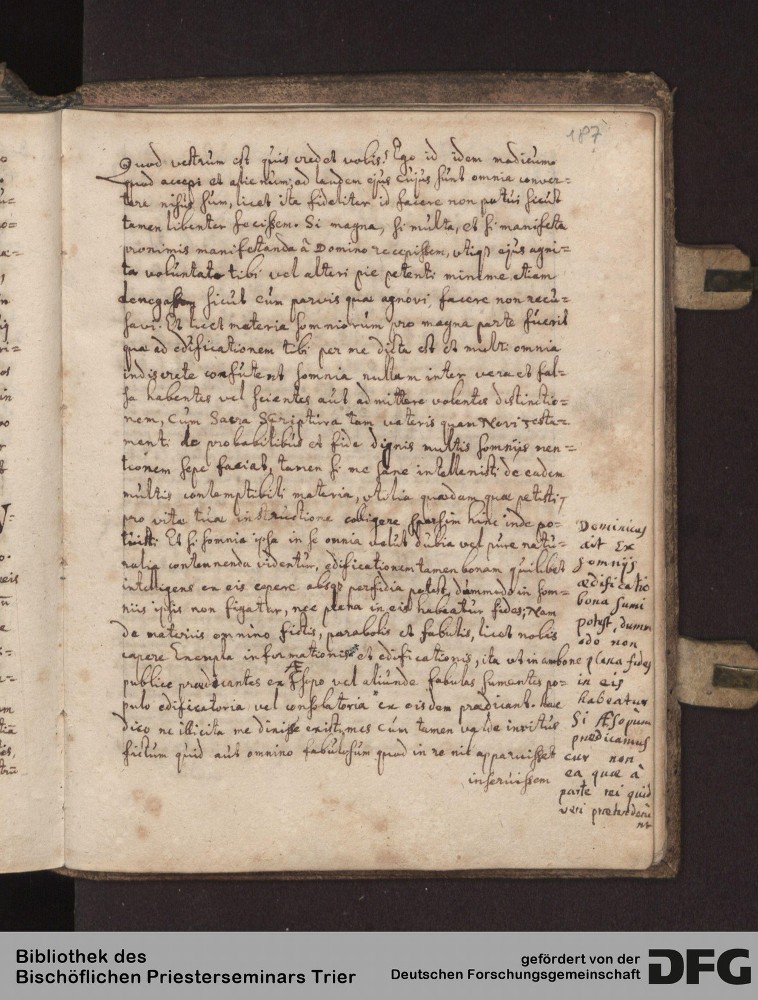 187
Quod vestrum est quis credet vobis? Ego id idem modicum
quod accepi et ad laudem ejus cujus sunt omnia conver=
tere nisus sum, licet ita fideliter id facere non potui sicut
tamen libenter fecissem. Si magna, si multa, et si manifesta
proximis manifestanda â Domino recepissem, utiq ejus agni=
ta voluntate tibi vel alteri pie petenti minime etiam
denegassem sicut cùm parvis quae agnovi, facere non recu=
savi. Et licet materia somniorum pro magna parte fuerit
quae ad edificationem tibi per me dicta est et multi omnia
indiscrete confutent somnia nullam inter vera et fal=
sa habentes vel scientes aut admittere volentes distinctio=
nem, Cùm Sacra Scriptura tam veteris quam Novi testa=
menti de probabilibus et fide dignis multis somnijs men=
tionem sepe faciat, tamen si me sane intellexisti de eadem
multis contemptibili materia, utilia quaedam quae petisti,
pro vitae tuae instructione colligere sparsim hinc inde po=
tuisti. Et si somnia ipsa in se omnia velut dubia vel pure natu=
ralia contemnenda videntur, edificationem tamen bonam quilibet
intelligens ex eis capere absq perfidia potest, dummodo in som=
niis ipsis non figatur, nec plena in eis habeatur fides; Nam
de materiis omnino fictis, parabolis et fabulis, licet nobis
capere Exempla informationis et edificationis, ita ut in ambone
publice praedicantes ex Æsopo vel aliunde fabulas sumentes po=
pulo edificatoria vel consolatoria ex eisdem praedicant. Haec
dico ne illicita me dixisse existimes cùm tamen valde invitus
fictum quid aut omnino fabulosum quod in re nit apparuisset
inseruissem
Dominicus
ait Ex
somnijs
aedificatio
bona sumi
potest, dumm
odo non
plena fides
in eis
habeatur
Si Æsopum
praedicamus
cur non
ea quae à
parte rei quid
veri praetenderu
nt
Bibliothek des
Bischöflichen Priesterseminars Trier
gefördert von der
Deutschen Forschungsgemeinschaft
DFG